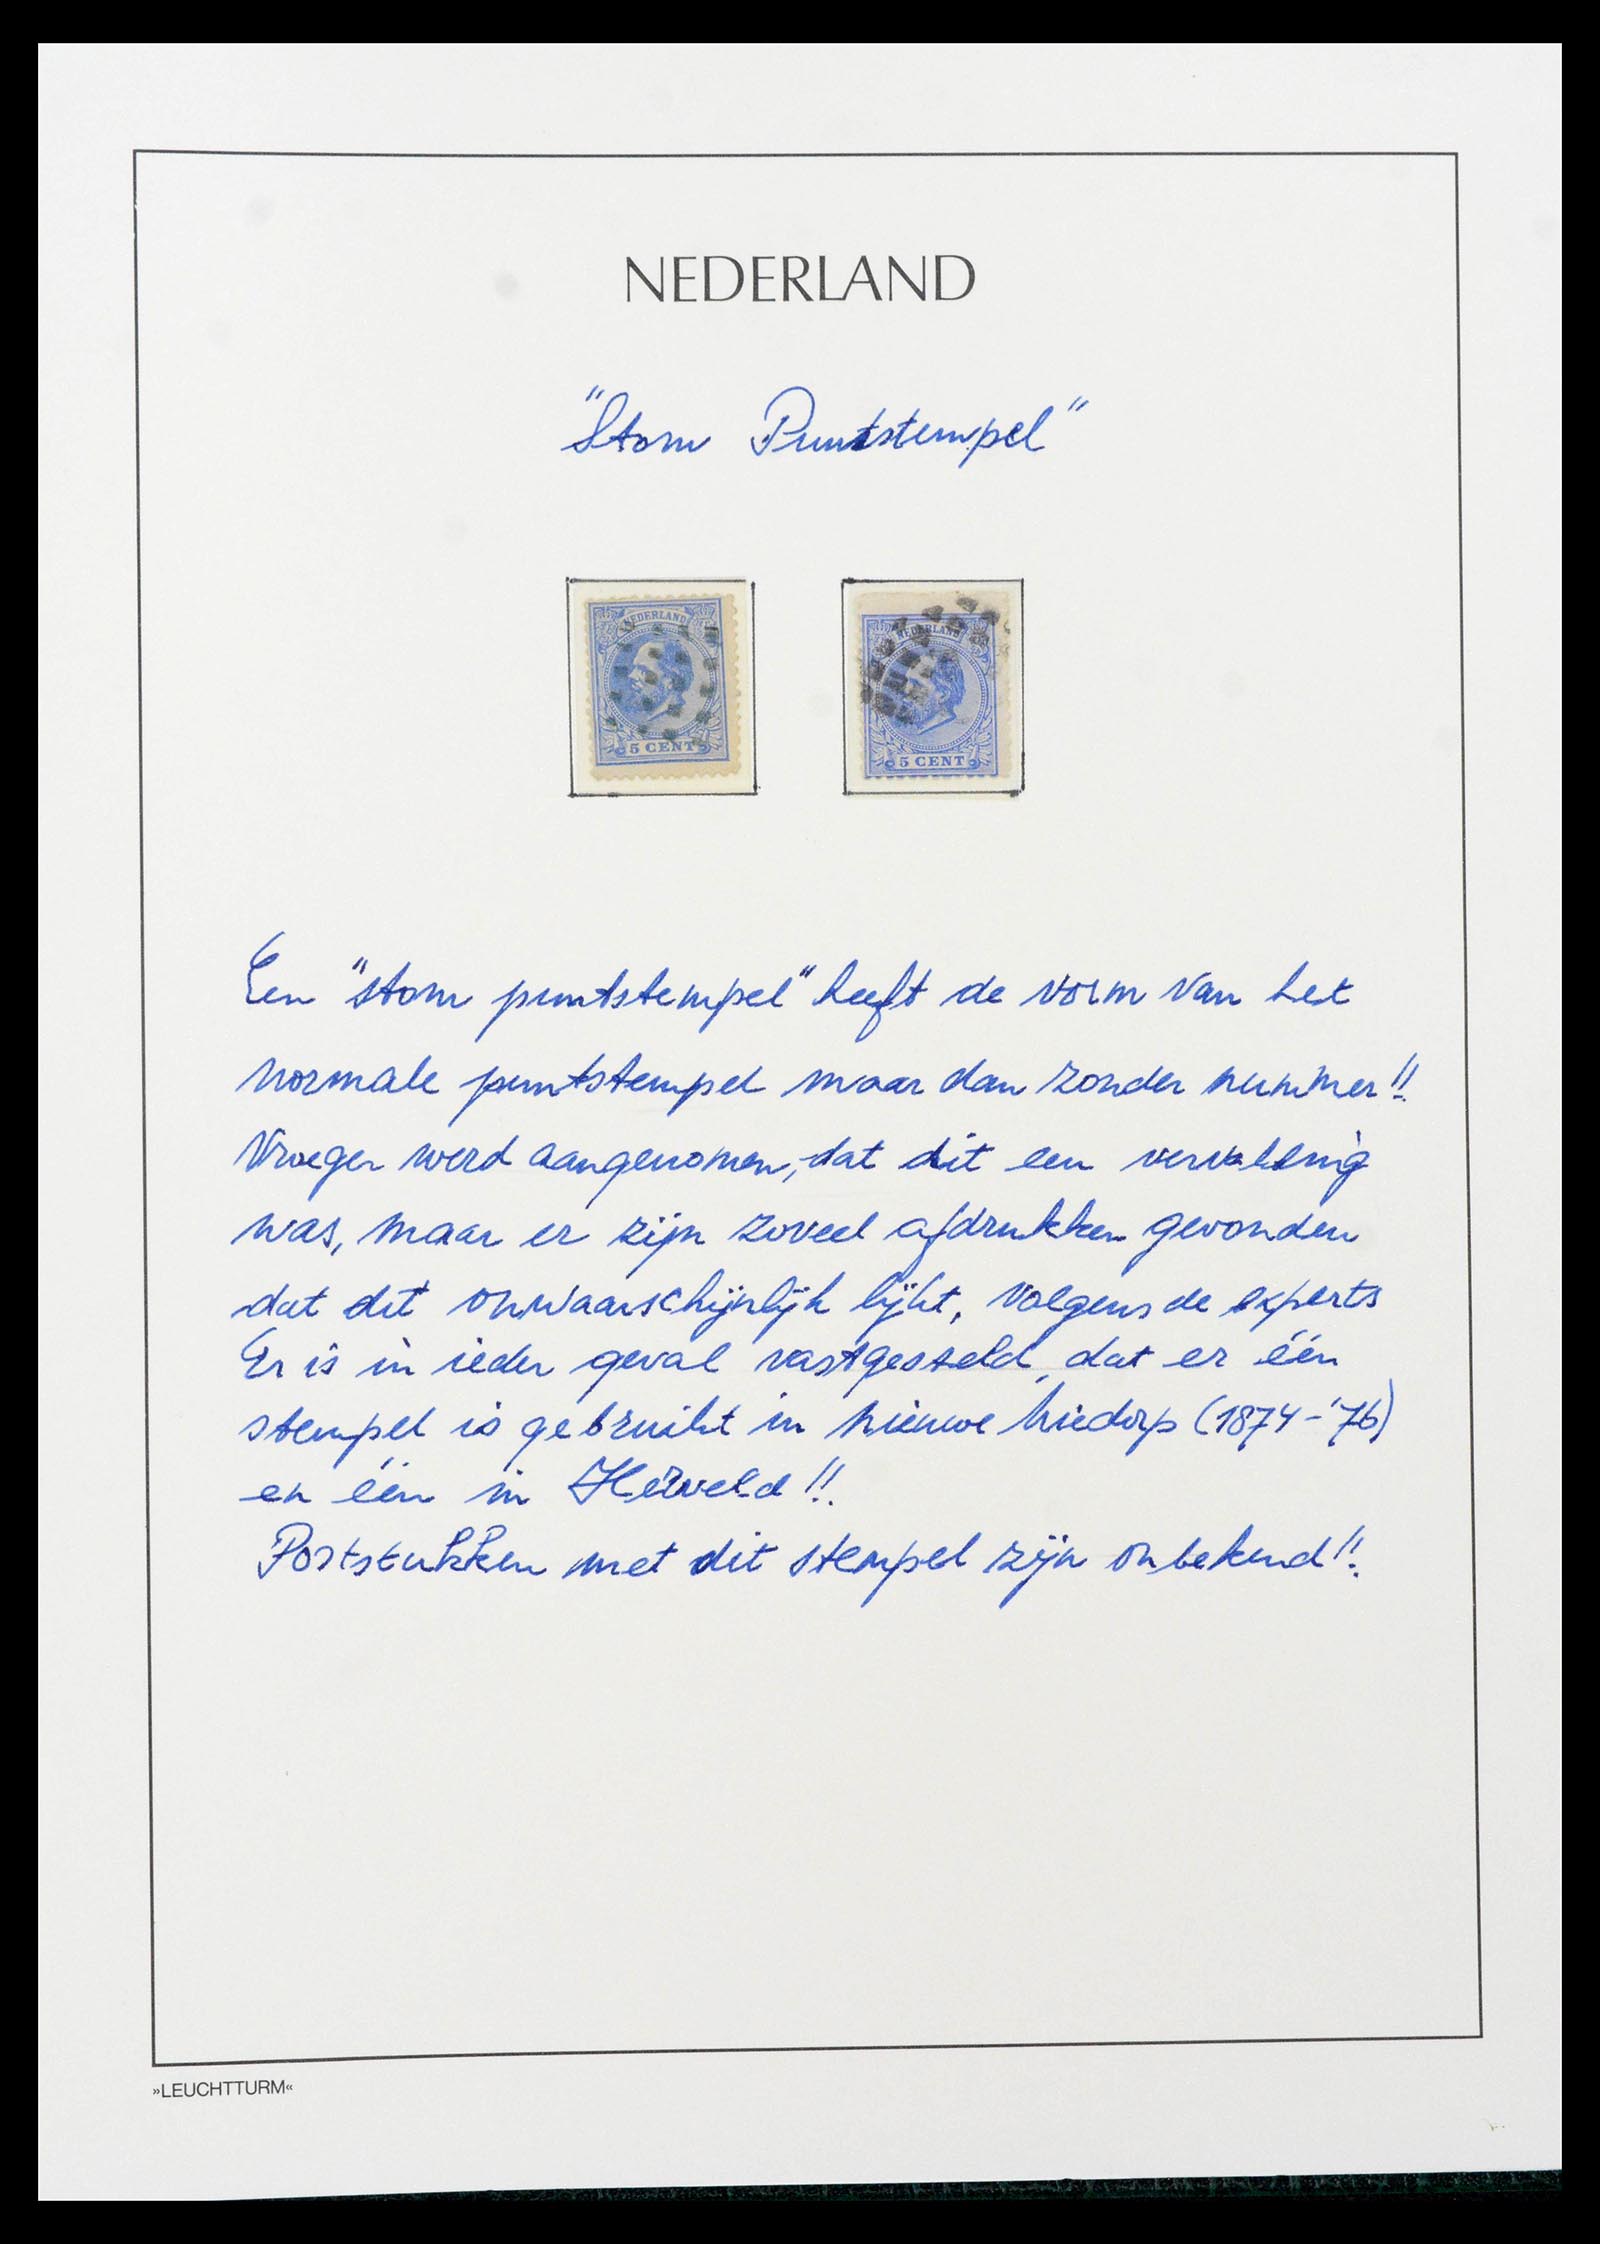 NEDERLAND
"Stom Puntstempel"
NEDERLAND
5 CENT
NEDERLAND
5 CENT
Een "stom puntstempel" heeft de vorm van het
normale puntstempel maar dan zonder nummer!!
Vroeger werd aangenomen, dat dit een vervalsing
was, maar er zijn zoveel afdrukken gevonden
dat dit onwaarschijnlijk lijkt, volgens de experts
Er is in ieder geval vastgesteld, dat er één
stempel is gebruikt in Nieuwe Niedorp (1874-'76)
en één in Herveld!!
Poststukken met dit stempel zijn onbekend!!
»LEUCHTTURM«